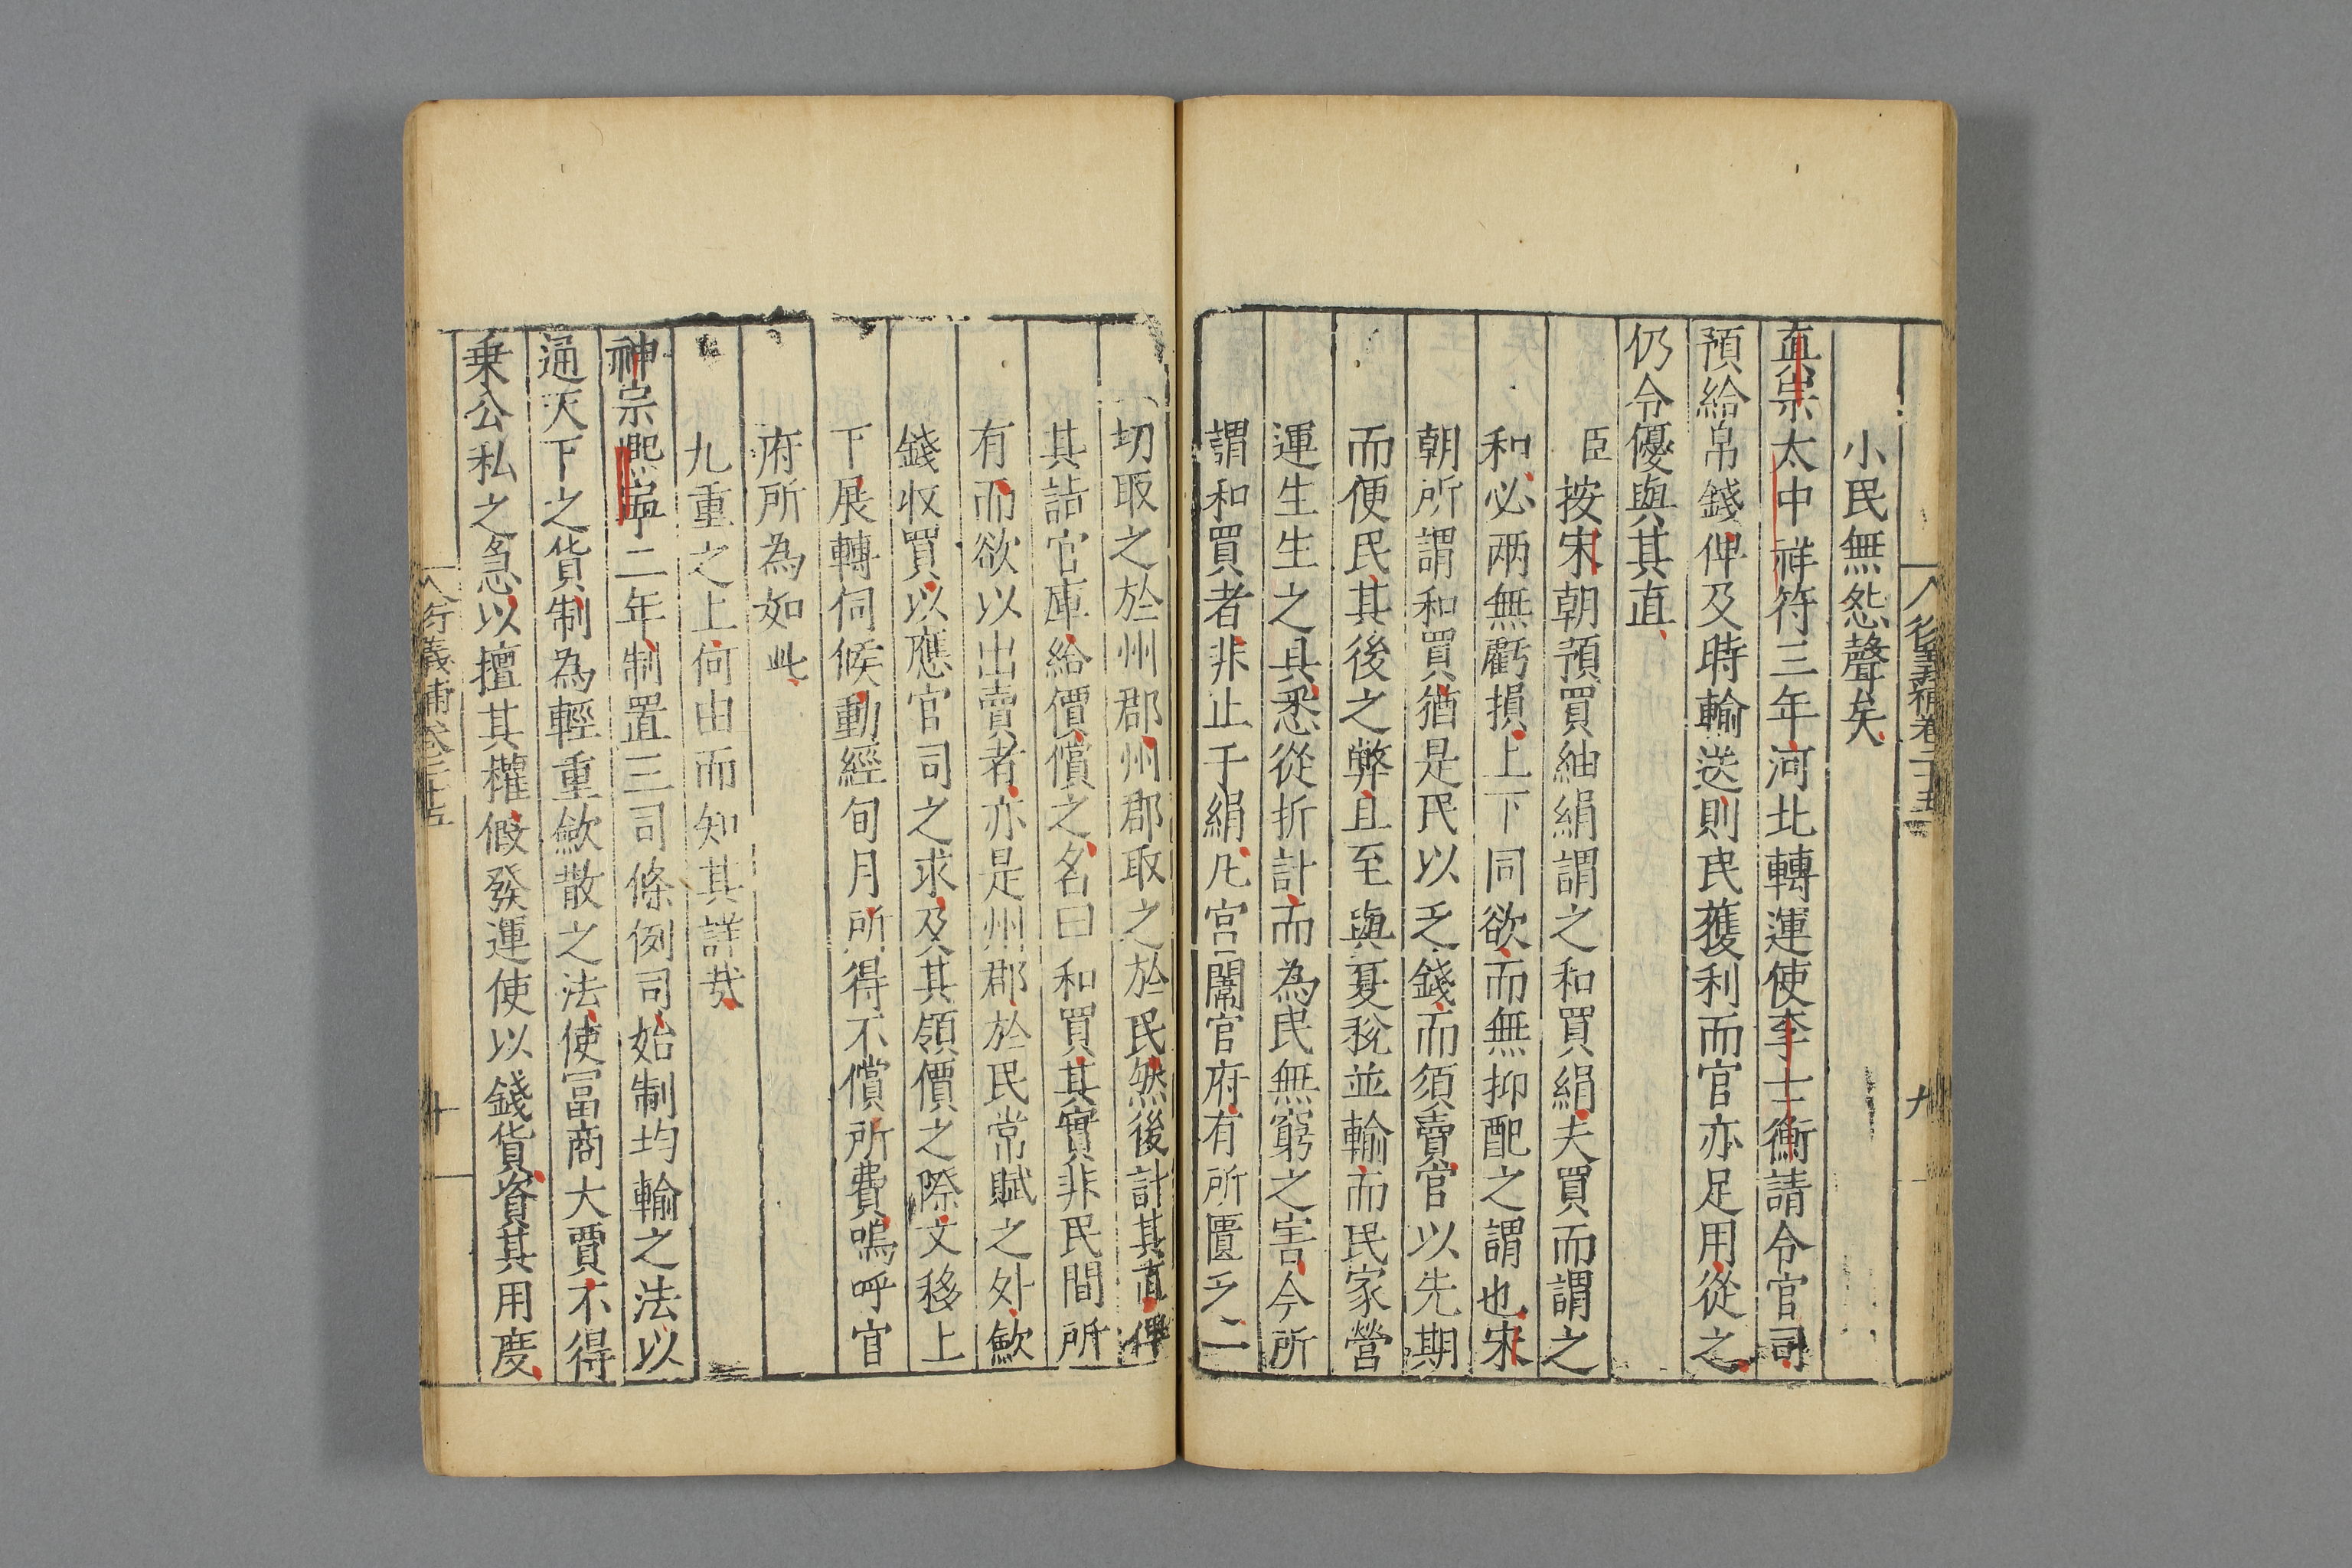 小民無怨聲矣
真宗太中祥符三年河北轉運使李士衡請令官司
預給帛錢俾及時輸送則民獲利而官亦足用從之
仍令優與其直
臣按宋朝預買紬絹謂之和買絹夫買而謂之
和必兩無虧損上下同欲而無抑配之謂也宋
朝所謂和買猶是民以乏錢而須賣官以先期
而便民其後之弊且至與夏稅並輸而民家營
運生生之具悉從折計而為民無窮之害今所
謂和買者非止于絹凡宮闈官府有所匱乏一
切取之於州郡州郡取之於民然後計其直俾
其詣官庫給價償之名曰和買其實非民間所
有而欲以出賣者亦是州郡於民常賦之外歛
錢收買以應官司之求及其領價之際文移上
下展轉伺候動經旬月所得不償所費嗚呼官
府所為如此
九重之上何由而知其詳哉
神宗熈寧二年制置三司條例司始制均輸之法以
通天下之貨制為輕重歛散之法使冨商大賈不得
乗公私之急以擅其權假發運使以錢貨資其用度